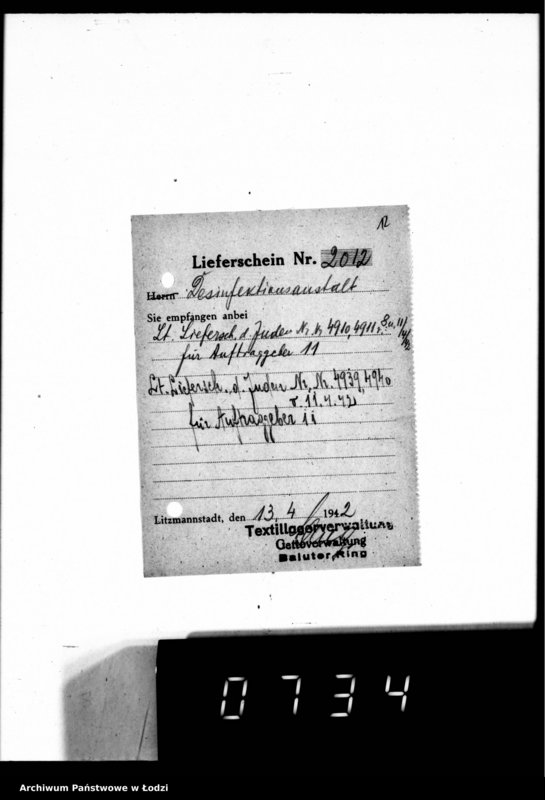 12
Lieferschein Nr. 2012
Herrn Desinfektionsanstalt
Sie empfangen anbei
Lt. Liefersch. d. Juden Nr. Nr. 4910, 4911, 8 u. 11/4/42
für Auftraggeber 11
Lt. Liefersch. d. Juden Nr. Nr. 4939, 4940
v. 11.4.42
für Auftraggeber 11
Litzmannstadt, den 13. 4 1942
Textillagerverwaltung
Gettoverwaltung
Baluter Ring
0734
Archiwum Państwowe w Łodzi